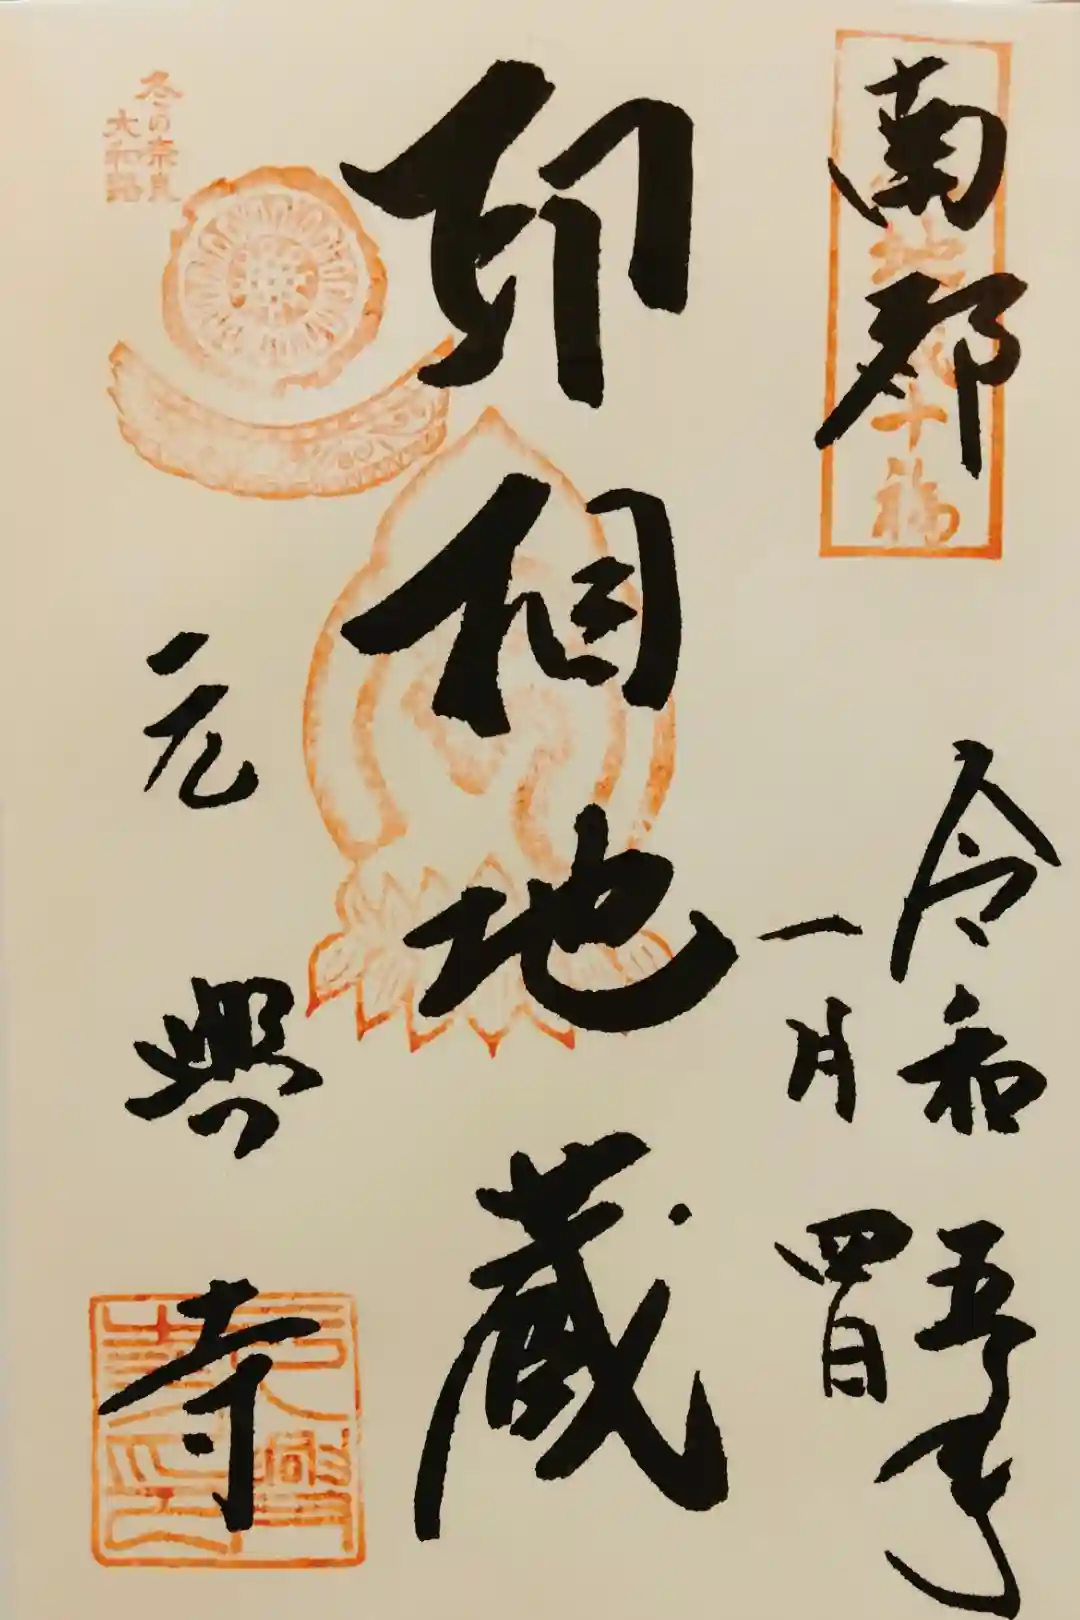 南都
令和五年
一月四日
印相地蔵
元興寺
冬の奈良
大和路